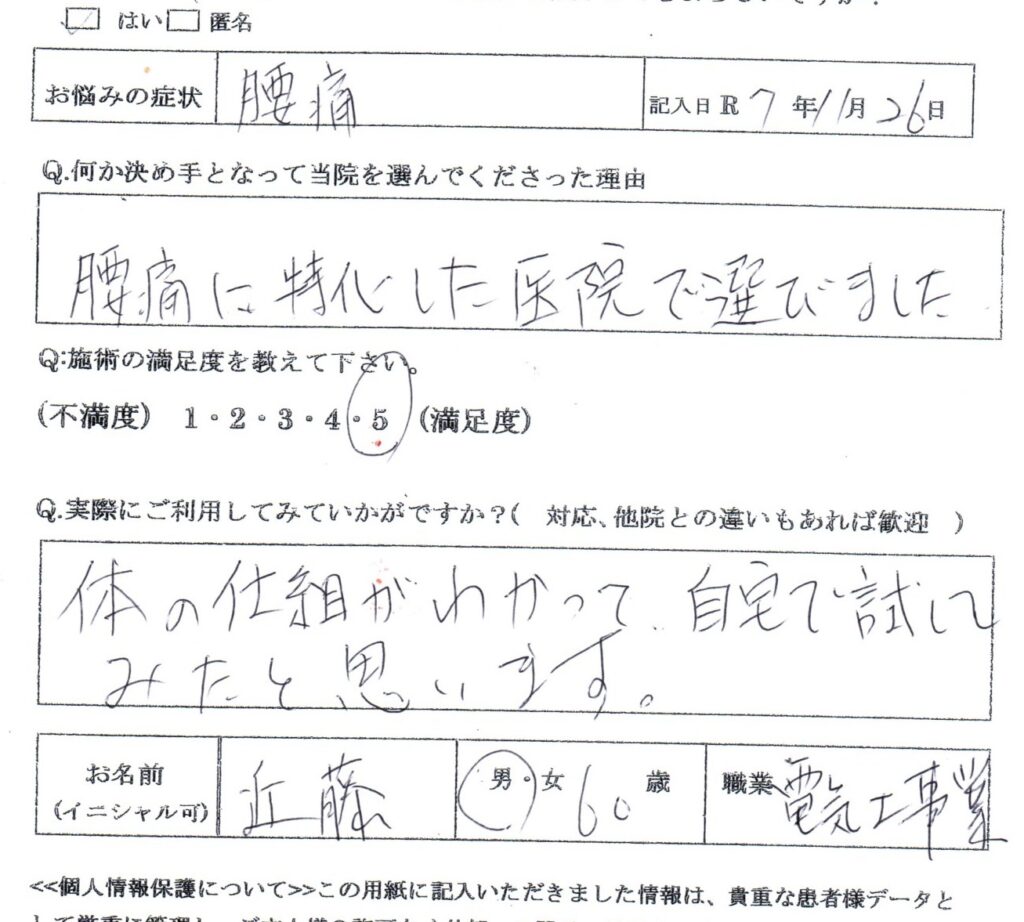 はい 匿名
お悩みの症状 腰痛 記入日 R 7 年 11 月 26 日
Q.何か決め手となって当院を選んでくださった理由
腰痛に特化した医院で選びました
Q:施術の満足度を教えて下さい。
(不満度) 1・2・3・4・5 (満足度)
Q.実際にご利用してみていかがですか?( 対応、他院との違いもあれば歓迎 )
体の仕組がわかって、自宅で試して
みたと思います。
お名前 近藤 男・女 60 歳 職業 電気工事業
(イニシャル可)
<<個人情報保護について>>この用紙に記入いただきました情報は、貴重な患者様データと